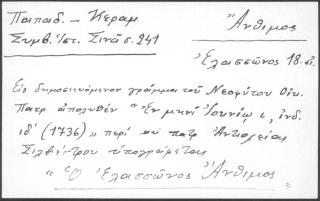 Παπαδ. - Κεραμ
Συμβ. Ἱστ. Σινᾶ σ. 241
Ἄνθιμος
Ἐλασσῶνος 18. αἰ.
Εἰς δημοσιευόμενον γράμμα τοῦ Νεοφύτου Οἰκ.
Πατρ ἀπολυθὲν "Ἐν μηνὶ Ἰουνίῳ ι, ἰνδ.
ιδʹ (1736)» περὶ πατρ Ἀντιοχείας
Σιλβέστρου ὑπογράφεται
"Ὁ Ἐλασσῶνος Ἄνθιμος